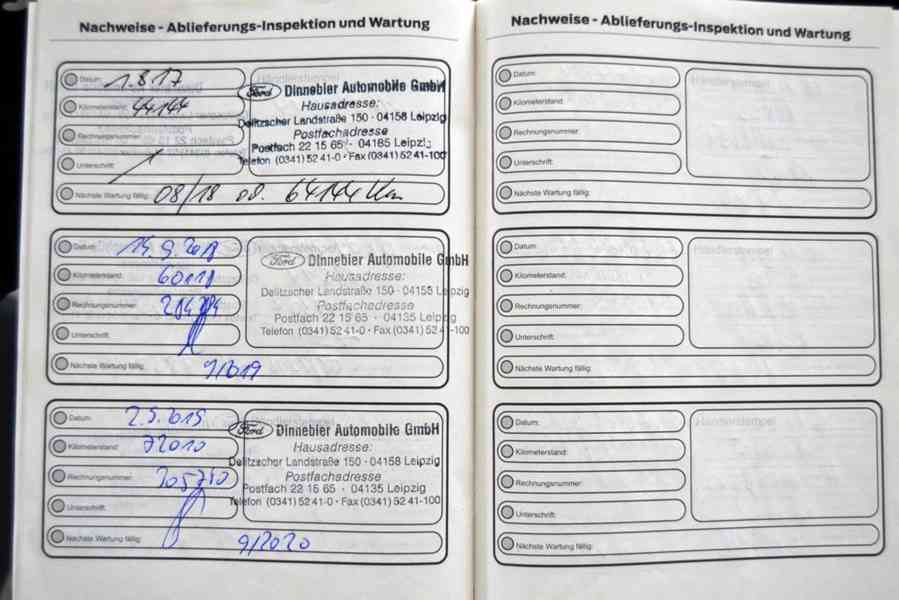 Nachweise - Ablieferungs-Inspektion und Wartung
Datum: 1.8.17
Kilometerstand: 44144
Rechnungsnummer:
Unterschrift:
Nächste Wartung fällig: 08/18 od. 64144 Km
Händlerstempel
Ford Dinnebier Automobile GmbH
Hausadresse:
Delitzscher Landstraße 150 - 04158 Leipzig
Postfachadresse
Postfach 22 15 65 · 04185 Leipzig
Telefon (0341) 52 41-0 · Fax (0341) 52 41-100
Datum:
Kilometerstand:
Rechnungsnummer:
Unterschrift:
Nächste Wartung fällig: 9/2019
Händlerstempel
Ford Dinnebier Automobile GmbH
Hausadresse:
Delitzscher Landstraße 150 - 04158 Leipzig
Postfachadresse
Postfach 22 15 65 · 04135 Leipzig
Telefon (0341) 52 41-0 · Fax (0341) 52 41-100
Datum:
Kilometerstand: 72010
Rechnungsnummer:
Unterschrift:
Nächste Wartung fällig: 9/2020
Ford Dinnebier Automobile GmbH
Hausadresse:
Delitzscher Landstraße 150 - 04158 Leipzig
Postfachadresse
Postfach 22 15 65 · 04135 Leipzig
Telefon (0341) 52 41-0 · Fax (0341) 52 41-100
Nachweise - Ablieferungs-Inspektion und Wartung
Datum:
Kilometerstand:
Rechnungsnummer:
Unterschrift:
Nächste Wartung fällig:
Händlerstempel
Datum:
Kilometerstand:
Rechnungsnummer:
Unterschrift:
Nächste Wartung fällig:
Händlerstempel
Datum:
Kilometerstand:
Rechnungsnummer:
Unterschrift:
Nächste Wartung fällig:
Händlerstempel